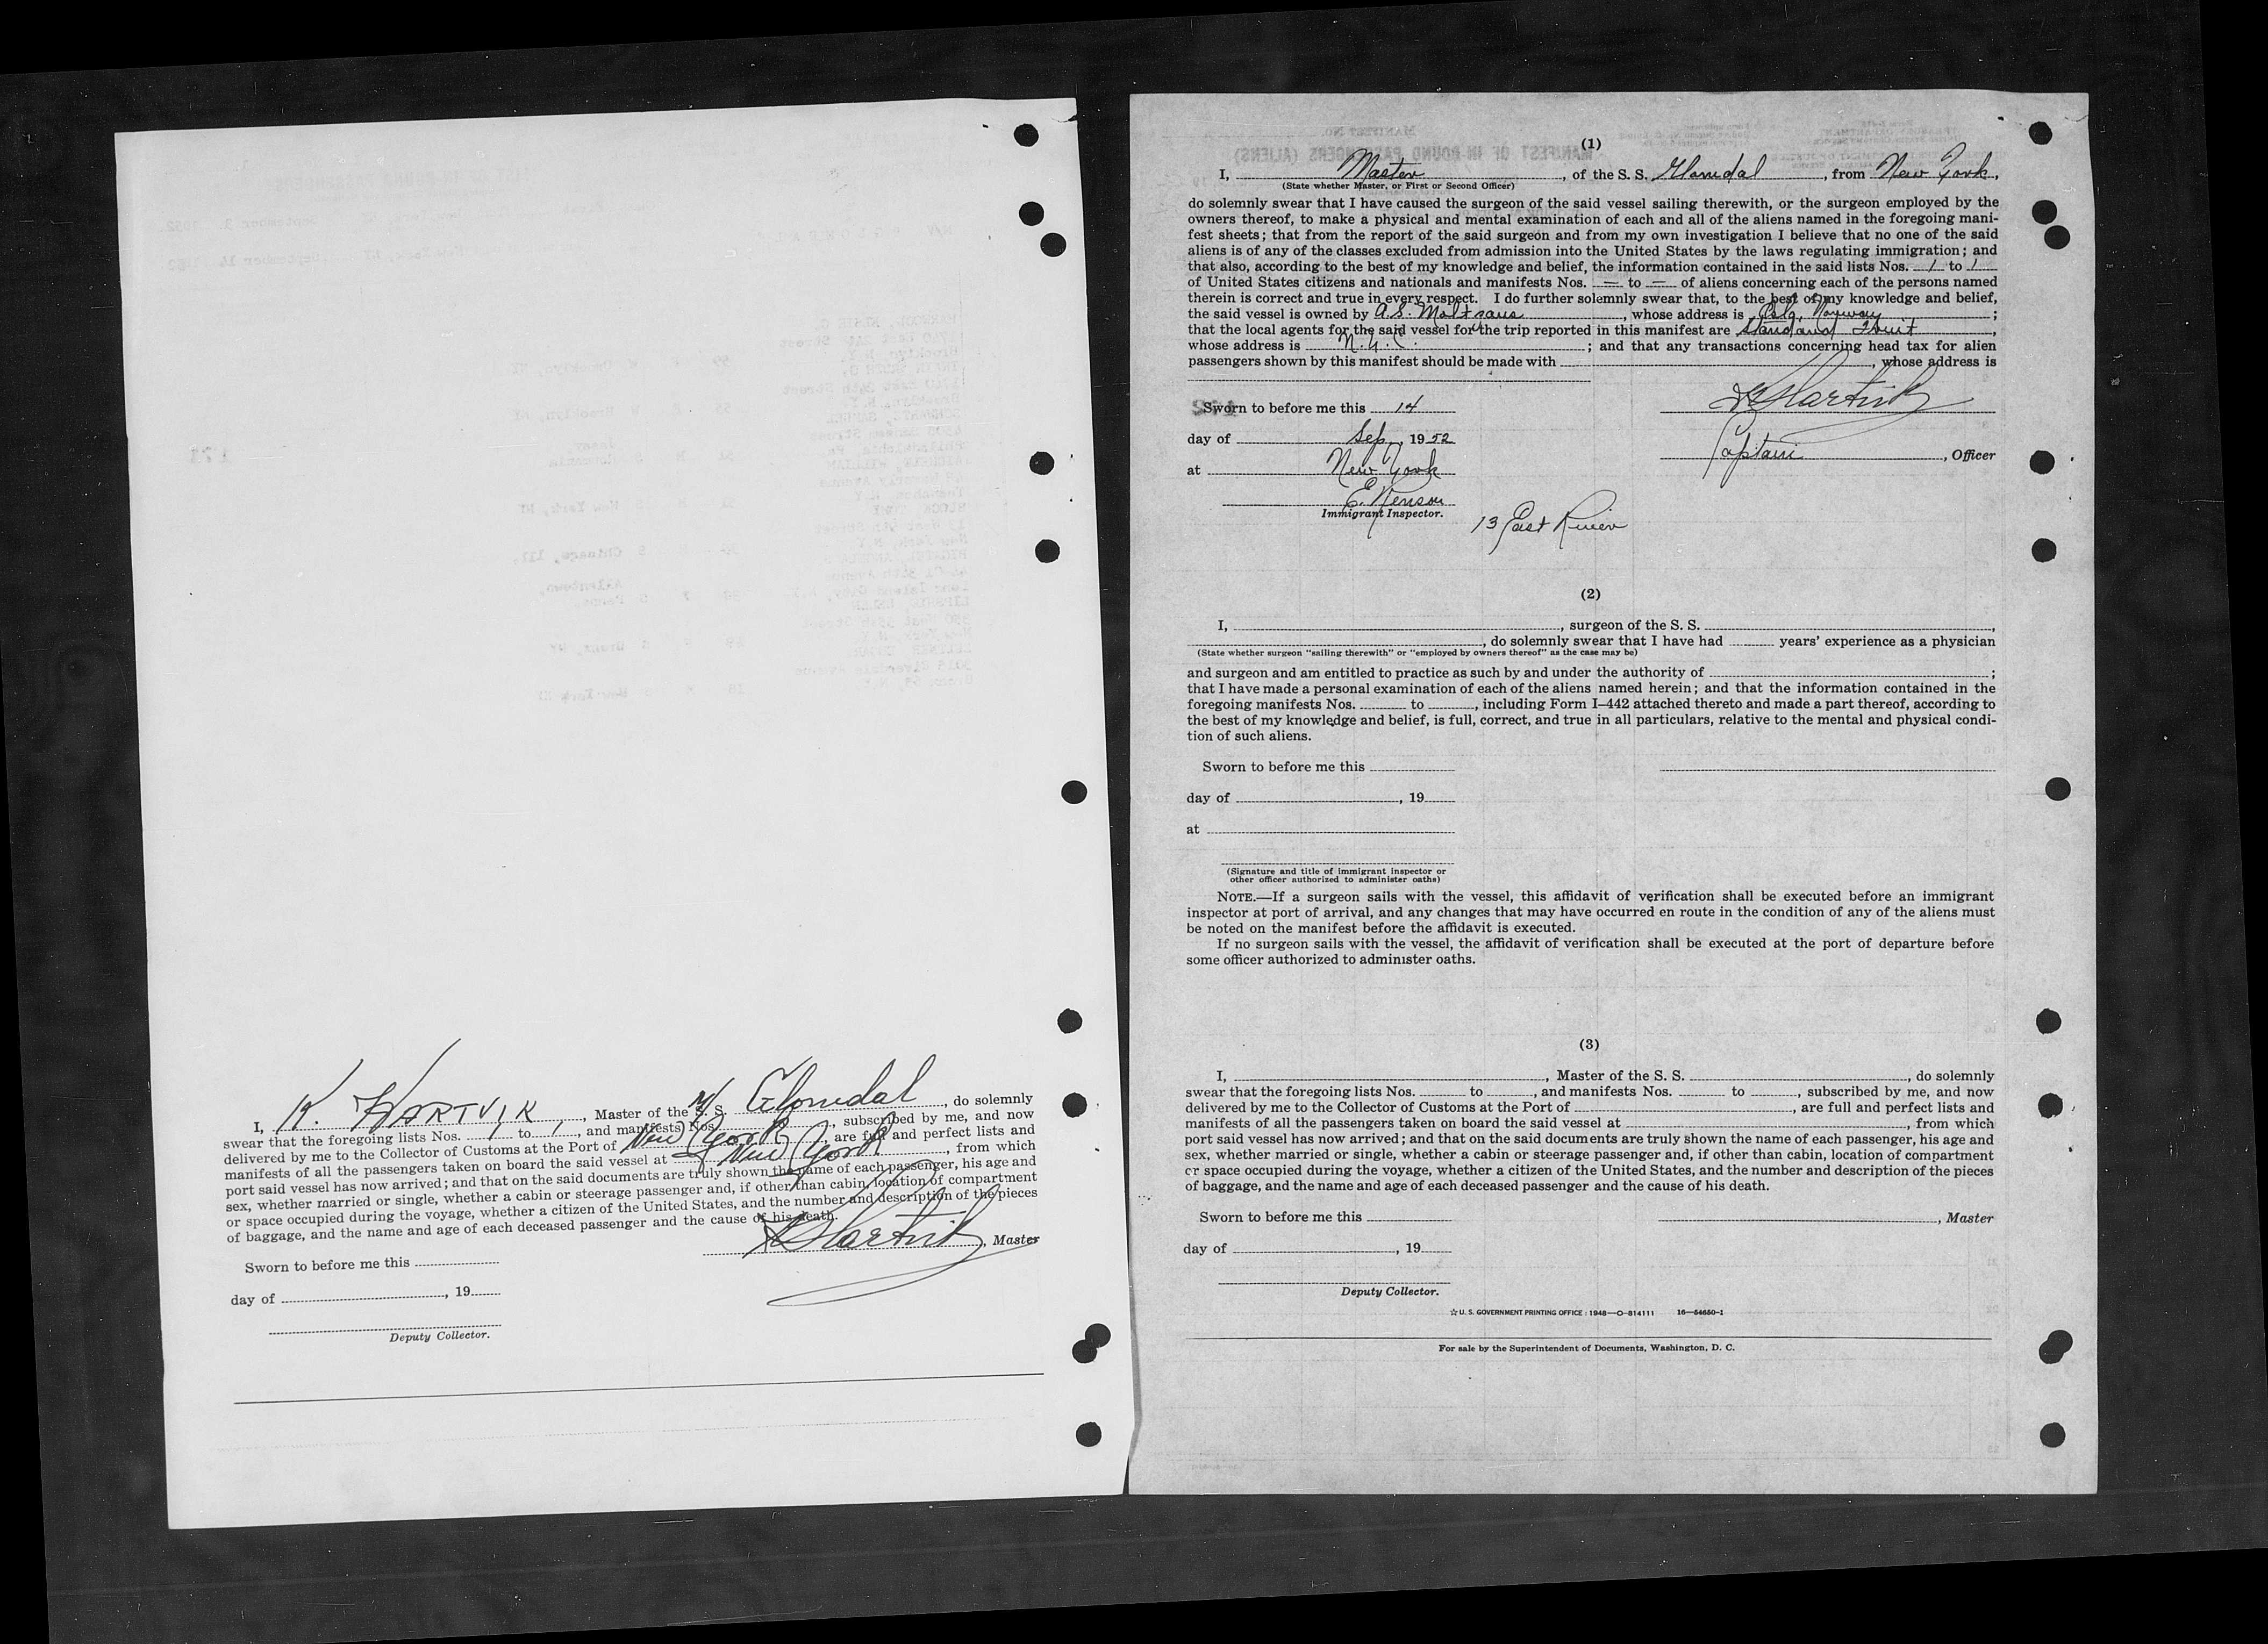 I, K. HARTVIK, Master of the M/S. S. Glomdal, do solemnly
swear that the foregoing lists Nos. 1 to 1, and manifests Nos. , subscribed by me, and now
delivered by me to the Collector of Customs at the Port of New York, are full and perfect lists and
manifests of all the passengers taken on board the said vessel at New York, from which
port said vessel has now arrived; and that on the said documents are truly shown the name of each passenger, his age and
sex, whether married or single, whether a cabin or steerage passenger and, if other than cabin, location of compartment
or space occupied during the voyage, whether a citizen of the United States, and the number and description of the pieces
of baggage, and the name and age of each deceased passenger and the cause of his death.
K Hartvik, Master
Sworn to before me this
day of , 19
Deputy Collector.
(1)
I, Master, of the S. S. Glomdal, from New York,
(State whether Master, or First or Second Officer)
do solemnly swear that I have caused the surgeon of the said vessel sailing therewith, or the surgeon employed by the
owners thereof, to make a physical and mental examination of each and all of the aliens named in the foregoing mani-
fest sheets; that from the report of the said surgeon and from my own investigation I believe that no one of the said
aliens is of any of the classes excluded from admission into the United States by the laws regulating immigration; and
that also, according to the best of my knowledge and belief, the information contained in the said lists Nos. 1 to 1
of United States citizens and nationals and manifests Nos. — to — of aliens concerning each of the persons named
therein is correct and true in every respect. I do further solemnly swear that, to the best of my knowledge and belief,
the said vessel is owned by A.S. , whose address is Oslo, Norway;
that the local agents for the said vessel for the trip reported in this manifest are Standard Fruit,
whose address is N.Y.C.; and that any transactions concerning head tax for alien
passengers shown by this manifest should be made with , whose address is
Sworn to before me this 14
K Hartvik
day of Sep, 1952
Captain, Officer
at New York
Immigrant Inspector.
13 East River
(2)
I, , surgeon of the S. S. ,
, do solemnly swear that I have had years' experience as a physician
(State whether surgeon "sailing therewith" or "employed by owners thereof" as the case may be)
and surgeon and am entitled to practice as such by and under the authority of ;
that I have made a personal examination of each of the aliens named herein; and that the information contained in the
foregoing manifests Nos. to , including Form I–442 attached thereto and made a part thereof, according to
the best of my knowledge and belief, is full, correct, and true in all particulars, relative to the mental and physical condi-
tion of such aliens.
Sworn to before me this
day of , 19
at
(Signature and title of immigrant inspector or
other officer authorized to administer oaths)
NOTE.—If a surgeon sails with the vessel, this affidavit of verification shall be executed before an immigrant
inspector at port of arrival, and any changes that may have occurred en route in the condition of any of the aliens must
be noted on the manifest before the affidavit is executed.
If no surgeon sails with the vessel, the affidavit of verification shall be executed at the port of departure before
some officer authorized to administer oaths.
(3)
I, , Master of the S. S. , do solemnly
swear that the foregoing lists Nos. to , and manifests Nos. to , subscribed by me, and now
delivered by me to the Collector of Customs at the Port of , are full and perfect lists and
manifests of all the passengers taken on board the said vessel at , from which
port said vessel has now arrived; and that on the said documents are truly shown the name of each passenger, his age and
sex, whether married or single, whether a cabin or steerage passenger and, if other than cabin, location of compartment
or space occupied during the voyage, whether a citizen of the United States, and the number and description of the pieces
of baggage, and the name and age of each deceased passenger and the cause of his death.
Sworn to before me this
, Master
day of , 19
Deputy Collector.
☆ U. S. GOVERNMENT PRINTING OFFICE : 1948—O-814111 16—54650-1
For sale by the Superintendent of Documents, Washington, D. C.